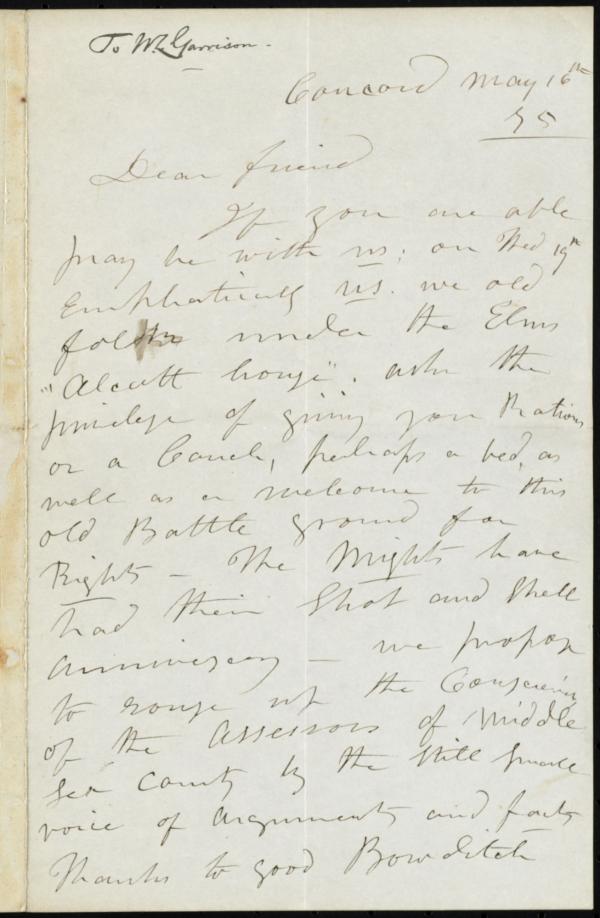 To Wm L Garrison.
Concord May 16th
75
Dear friend
If you are able
pray be with us; on Wed 19th
Emphatically us. we old
folks under the Elms
"Alcott house". asks the
privilege of giving you Rations
or a Couch, perhaps a bed, as
well as a welcome to this
old Battle ground for
Rights – The Mights have
had their Shot and Shell
anniversary – we propose
to rouse up the Consciences
of the Assessors of Middle
sex County by the still small
voice of arguments and facts
Thanks to good Bowditch